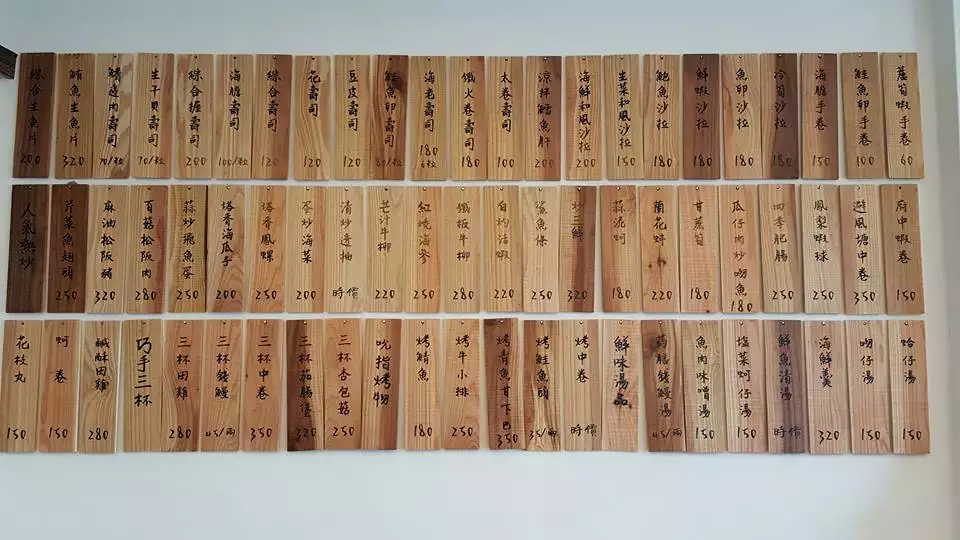 綜合生魚片 200
鮪魚生魚片 320
鰭邊肉壽司 70/粒
生干貝壽司 70/粒
綜合握壽司 200
海膽壽司 100/粒
綜合壽司 120
花壽司 120
豆皮壽司 120
鮭魚卵壽司 80/粒
海老壽司 180 6粒
鐵火卷壽司 180
太卷壽司 100
涼拌鱈魚肝 200
海鮮和風沙拉 200
生菜和風沙拉 150
鮑魚沙拉 180
鮮蝦沙拉 180
魚卵沙拉 180
冷筍沙拉 180
海膽手卷 150
鮭魚卵手卷 100
蘆筍蝦手卷 60
人氣熱炒
芹菜魚翅頭 250
麻油松阪豬 320
百菇松阪肉 280
蒜炒飛魚蛋 250
塔香海瓜子 200
塔香鳳螺 250
蛋炒海菜 200
清炒透抽 時價
芒汁牛柳 220
紅燒海參 250
鐵板牛柳 280
白灼活蝦 220
鯊魚條 250
炒三鮮 320
蒜泥蚵 180
蘭花蚌 220
甘蔗筍 180
瓜仔肉炒吻魚 180
四季肥腸 250
鳳梨蝦球 250
避風塘中卷 350
府中蝦卷 150
花枝丸 150
蚵卷 150
鹹酥田雞 280
巧手三杯
三杯田雞 280
三杯錢鰻 45/兩
三杯中卷 350
三杯茄腸煲 320
三杯杏包菇 250
吮指烤物
烤鯖魚 180
烤牛小排 250
烤青魽下巴 350
烤鮭魚頭 35/兩
烤中卷 時價
鮮味湯品
药膳錢鰻湯 45/兩
魚肉味噌湯 150
塩菜蚵仔湯 150
鮮魚清湯 時價
海鮮羹 320
吻仔湯 150
蛤仔湯 150